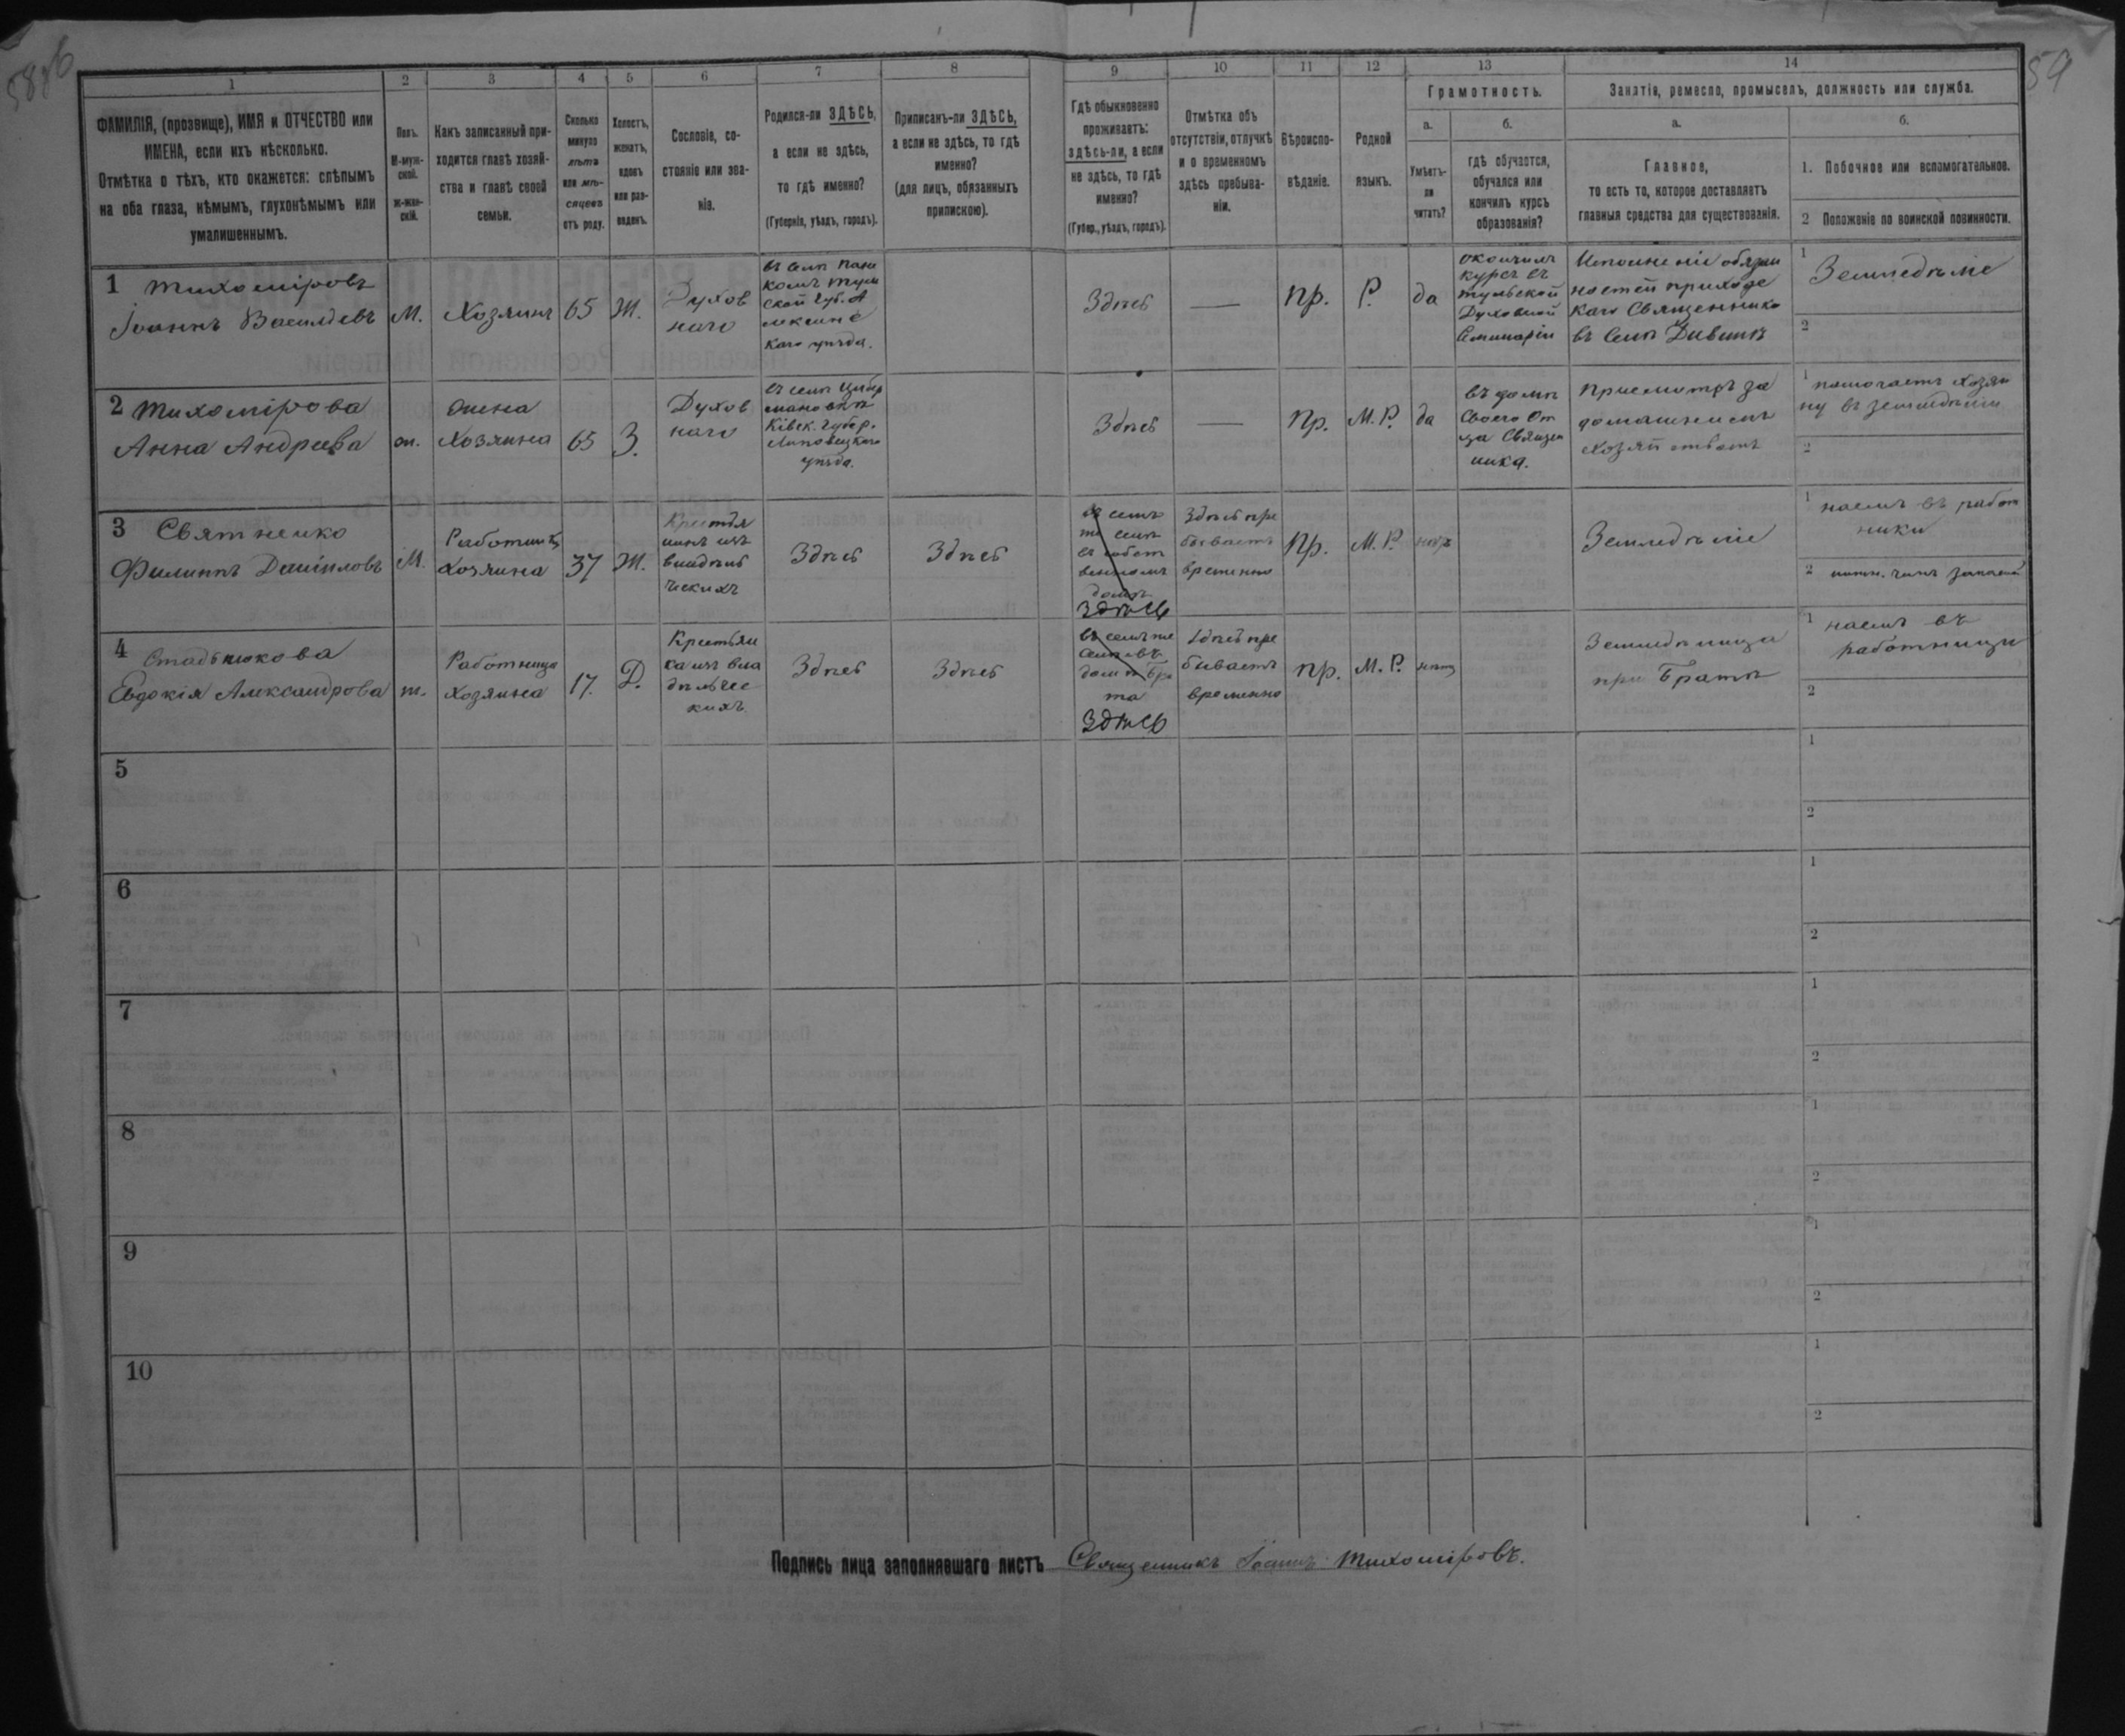 58 об
59
1
2
3
4
5
6
7
8
9
10
11
12
13
14
ФАМИЛІЯ, (прозвище), ИМЯ и ОТЧЕСТВО или
ИМЕНА, если ихъ нѣсколько.
Отмѣтка о тѣхъ, кто окажется: слѣпымъ
на оба глаза, нѣмымъ, глухонѣмымъ или
умалишеннымъ.
Полъ.
М-муж-
ской.
Ж-жен-
скій.
Какъ записанный при-
ходится главѣ хозяй-
ства и главѣ своей
семьи.
Сколько
минуло
лѣтъ
или мѣ-
сяцевъ
отъ роду.
Холостъ,
женатъ,
вдовъ
или раз-
веденъ.
Сословіе, со-
стояніе или зва-
ніе.
Родился-ли ЗДѢСЬ,
а если не здѣсь,
то гдѣ именно?
(Губернія, уѣздъ, городъ).
Приписанъ-ли ЗДѢСЬ,
а если не здѣсь, то гдѣ
именно?
(для лицъ, обязанныхъ
припискою).
Гдѣ обыкновенно
проживаетъ:
здѣсь-ли, а если
не здѣсь, то гдѣ
именно?
(Губер., уѣздъ, городъ).
Отмѣтка объ
отсутствіи, отлучкѣ
и о временномъ
здѣсь пребыва-
ніи.
Вѣроиспо-
вѣданіе.
Родной
языкъ.
Грамотность.
а.
Умѣетъ-
ли
читать?
б.
гдѣ обучается,
обучался или
кончилъ курсъ
образованія?
Занятіе, ремесло, промыселъ, должность или служба.
а.
Главное,
то есть то, которое доставляетъ
главныя средства для существованія.
б.
1. Побочное или вспомогательное.
2 Положеніе по воинской повинности.
1 Тихоміровъ
Іоаннъ Васильевъ
М.
Хозяинъ
65
Ж.
Духов
наго
въ селѣ
комъ Туль
ской губ. А
лексинс
каго уѣзда.
Здѣсь
—
Пр.
Р.
да
окончилъ
курсъ въ
тульской
Духовной
Семинаріи
Исполненіе обязан
ностей приходс
каго Священника
въ селѣ Дивинѣ
1 Земледѣліе
2
2 Тихомірова
Анна Андреева
ж.
жена
Хозяина
65
З.
Духов
наго
въ селѣ Цибер
мановкѣ
Кіевск. Губер.
Липовецкаго
уѣзда.
Здѣсь
—
Пр.
М. Р.
да
въ домѣ
Своего От
ца Священ
ника.
Присмотръ за
домашнимъ
Хозяйствомъ
1 помогаетъ хозяи
ну въ земледѣліи
2
3 Святненко
Филиппъ Даніиловъ
М.
Работникъ
Хозяина
37
Ж.
Крестья
нинъ изъ
владѣль
ческихъ
Здѣсь
Здѣсь
въ семъ
же селѣ
въ собст
венномъ
домѣ
Здѣсь
Здѣсь пре
бываетъ
временно
Пр.
М. Р.
нѣтъ
Земледѣліе
1 наемъ въ работ
ники
2 нижн. чинъ запаса
4 Стадьнюкова
Евдокія Александрова
ж.
Работница
Хозяина
17.
Д.
Крестьян
ка изъ вла
дѣльчес
кихъ
Здѣсь
Здѣсь
въ семъ же
селѣ въ
домѣ бра
та
Здѣсь
Здѣсь пре
бываетъ
временно
Пр.
М. Р.
нѣтъ
при Братѣ
1 наемъ въ
работницы
2
5
1
2
6
1
2
7
1
2
8
1
2
9
1
2
10
1
2
Подпись лица заполнявшаго листъ Священникъ Іоаннъ Тихоміровъ.